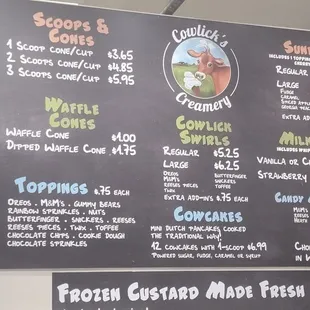 Scoops & Cones
1 Scoop Cone/Cup $3.65
2 Scoops Cone/Cup $4.85
3 Scoops Cone/Cup $5.95
Waffle Cones
Waffle Cone $1.00
Dipped Waffle Cone $1.75
Toppings $.75 each
Oreos . M&M's . Gummy Bears
Rainbow Sprinkles . Nuts
Butterfinger . Snickers . Reeses
Reeses Pieces . Twix . Toffee
Chocolate Chips . Cookie Dough
Chocolate Sprinkles
Cowlick's
Creamery
Cowlick Swirls
Regular $5.25
Large $6.25
Oreos Butterfinger
M&M's Snickers
Reeses Pieces Toffee
Twix
Extra Add-ins $.75 each
Cowcakes
Mini Dutch Pancakes, Cooked
the Traditional Way!
12 Cowcakes with 1-Scoop $6.99
Powdered Sugar, Fudge, Caramel or Syrup
Sun
Includes 1 Topping
Regular
Large
Fudge
Caramel
Extra Add
Milk
Includes Whip
Vanilla or C
Strawberry
Candy
M&M's
Reeses
in
Frozen Custard Made Fresh